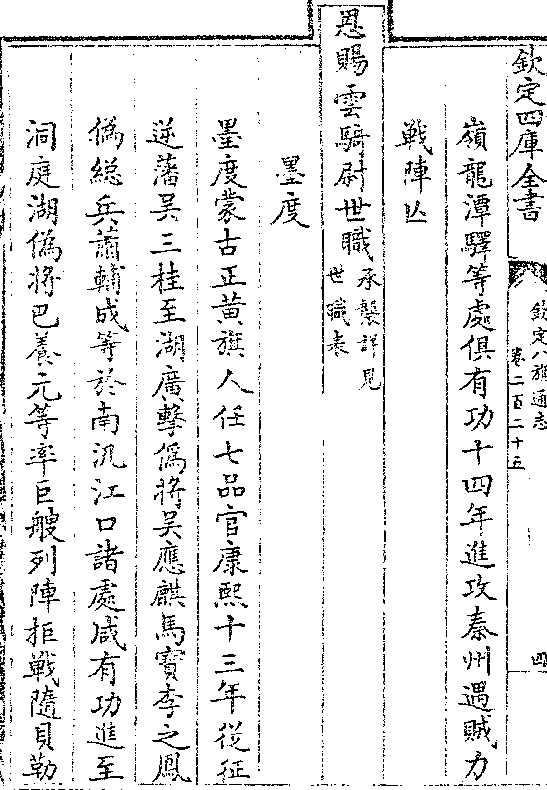 欽定四庫全書
欽定八旗通志
卷二百二十五
四
嶺龍潭驛等處俱有功十四年進攻秦州遇賊力
戰陣亡
恩賜雲騎尉世職承襲詳見
世職表
墨度
墨度蒙古正黃旗人任七品官康熙十三年從征
逆藩吳三桂至湖廣擊偽將吳應麒馬寳李之鳳
偽總兵蕭輔成等於南汛江口諸處咸有功進至
洞庭湖偽將巴養元等率巨艘列陣拒戰隨貝勒